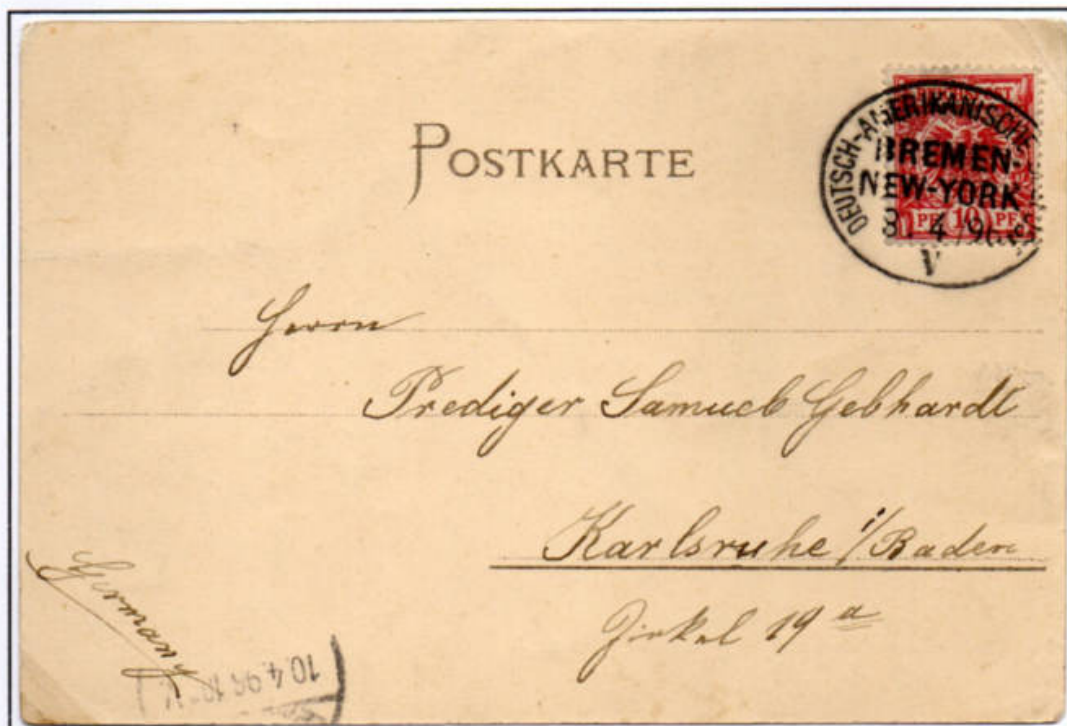 DEUTSCH-AMERIKANISCHE
BREMEN-
NEW-YORK
4 96
V
PF 10 PF
POSTKARTE
Herrn
Prediger Samuel Gebhardt
Karlsruhe i/Baden
Zirkel 19 a
Germany
10.4.96